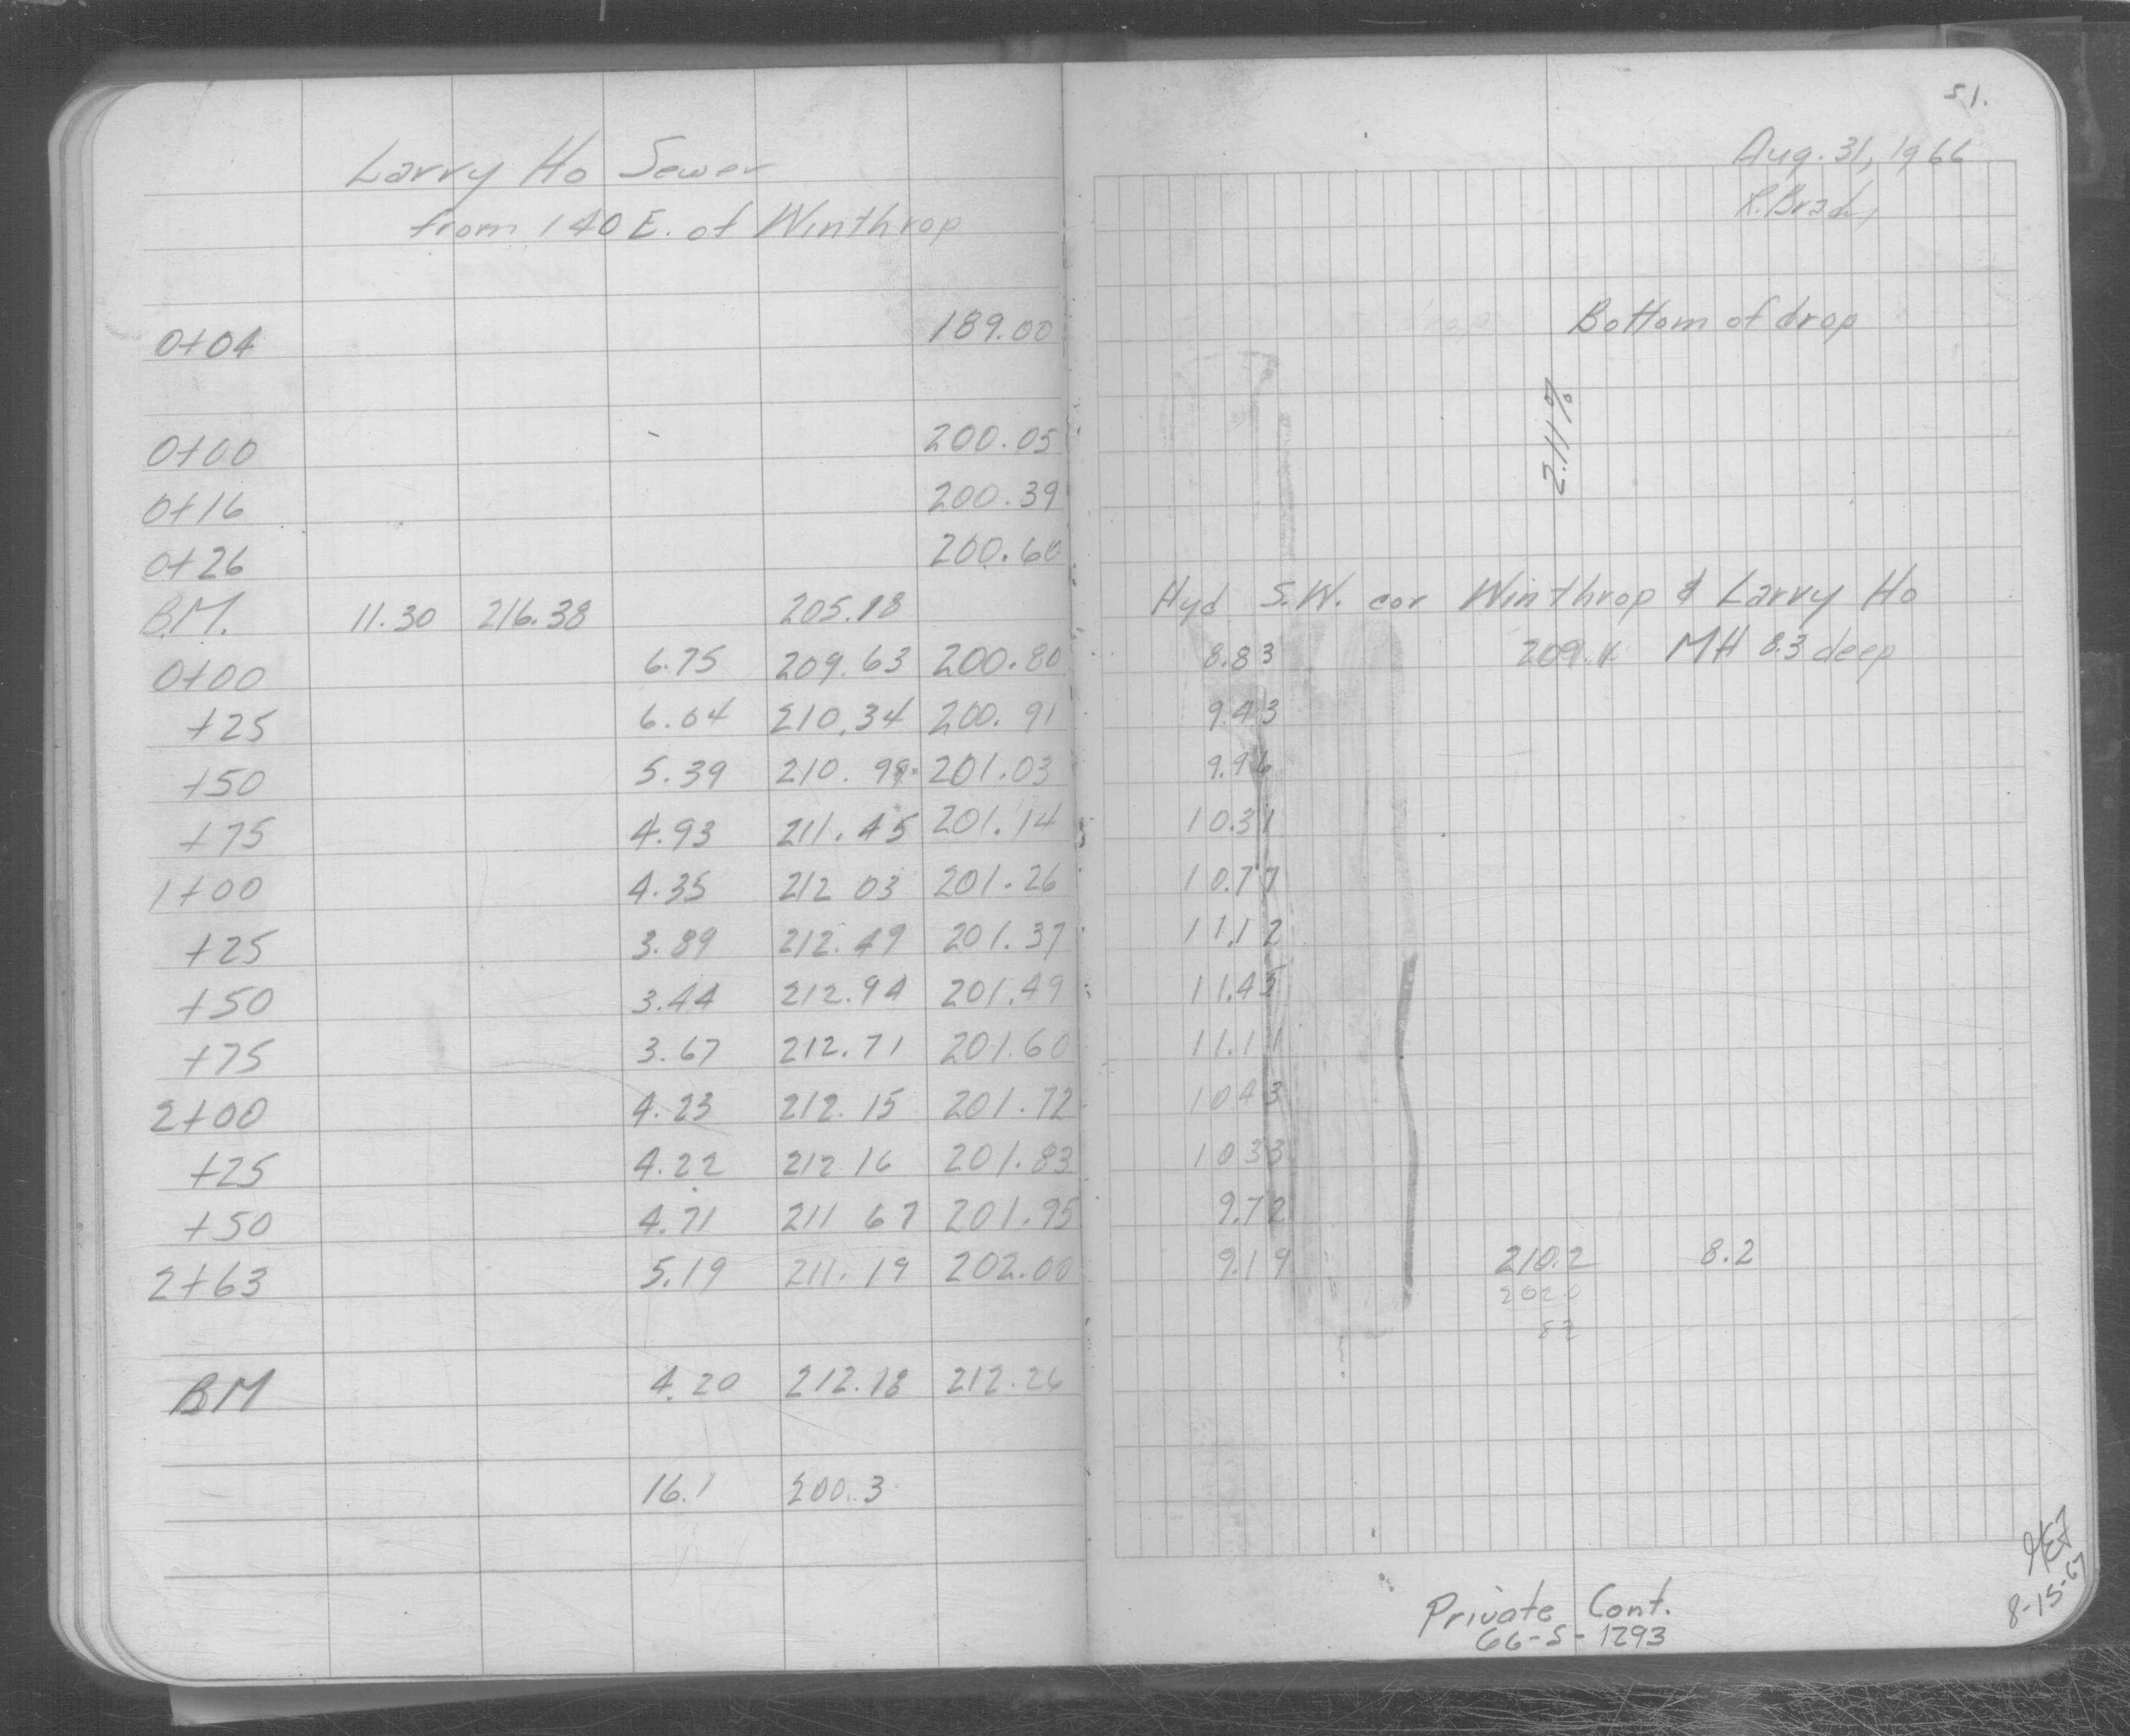 51.
Larry Ho Sewer
Aug. 31, 1966
from 140 E. of Winthrop
R. Brady
0+04 189.00 Bottom of drop
2.11%
0+00 200.05
0+16 200.39
0+26 200.60
B.M. 11.30 216.38 205.18 Hyd S.W. cor Winthrop & Larry Ho
0+00 6.75 209.63 200.80 8.83 MH 8.3 deep
+25 6.04 210.34 200.91 9.43
+50 5.39 210.99 201.03 9.96
+75 4.93 211.45 201.14 10.31
1+00 4.35 212 03 201.26 10.77
+25 3.89 212.49 201.37 11.12
+50 3.44 212.94 201.49 11.45
+75 3.67 212.71 201.60 11.11
2+00 4.23 212.15 201.72 10 43
+25 4.22 212 16 201.83 10 33
+50 4.71 211 67 201.95 9.72
2+63 5.19 211.19 202.00 9.19 210.2 8.2
202.0
82
BM 4.20 212.18 212.26
16.1 200.3
Private Cont.
66-S-1293
8-15-67